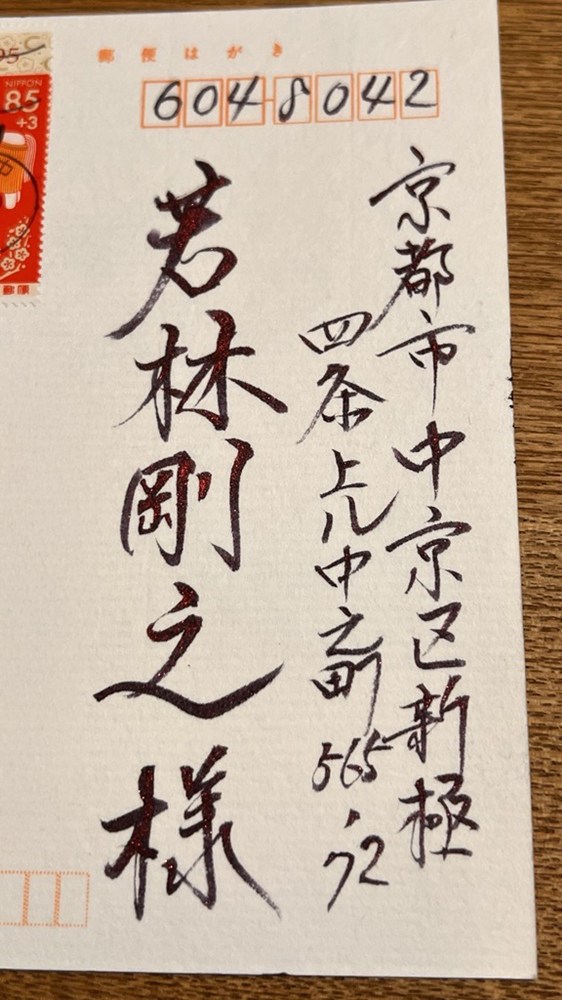 郵便はがき
604-8042
京都市中京区新極
四条上ル中之町565,72
若林剛之様
NIPPON
85
+3
郵便